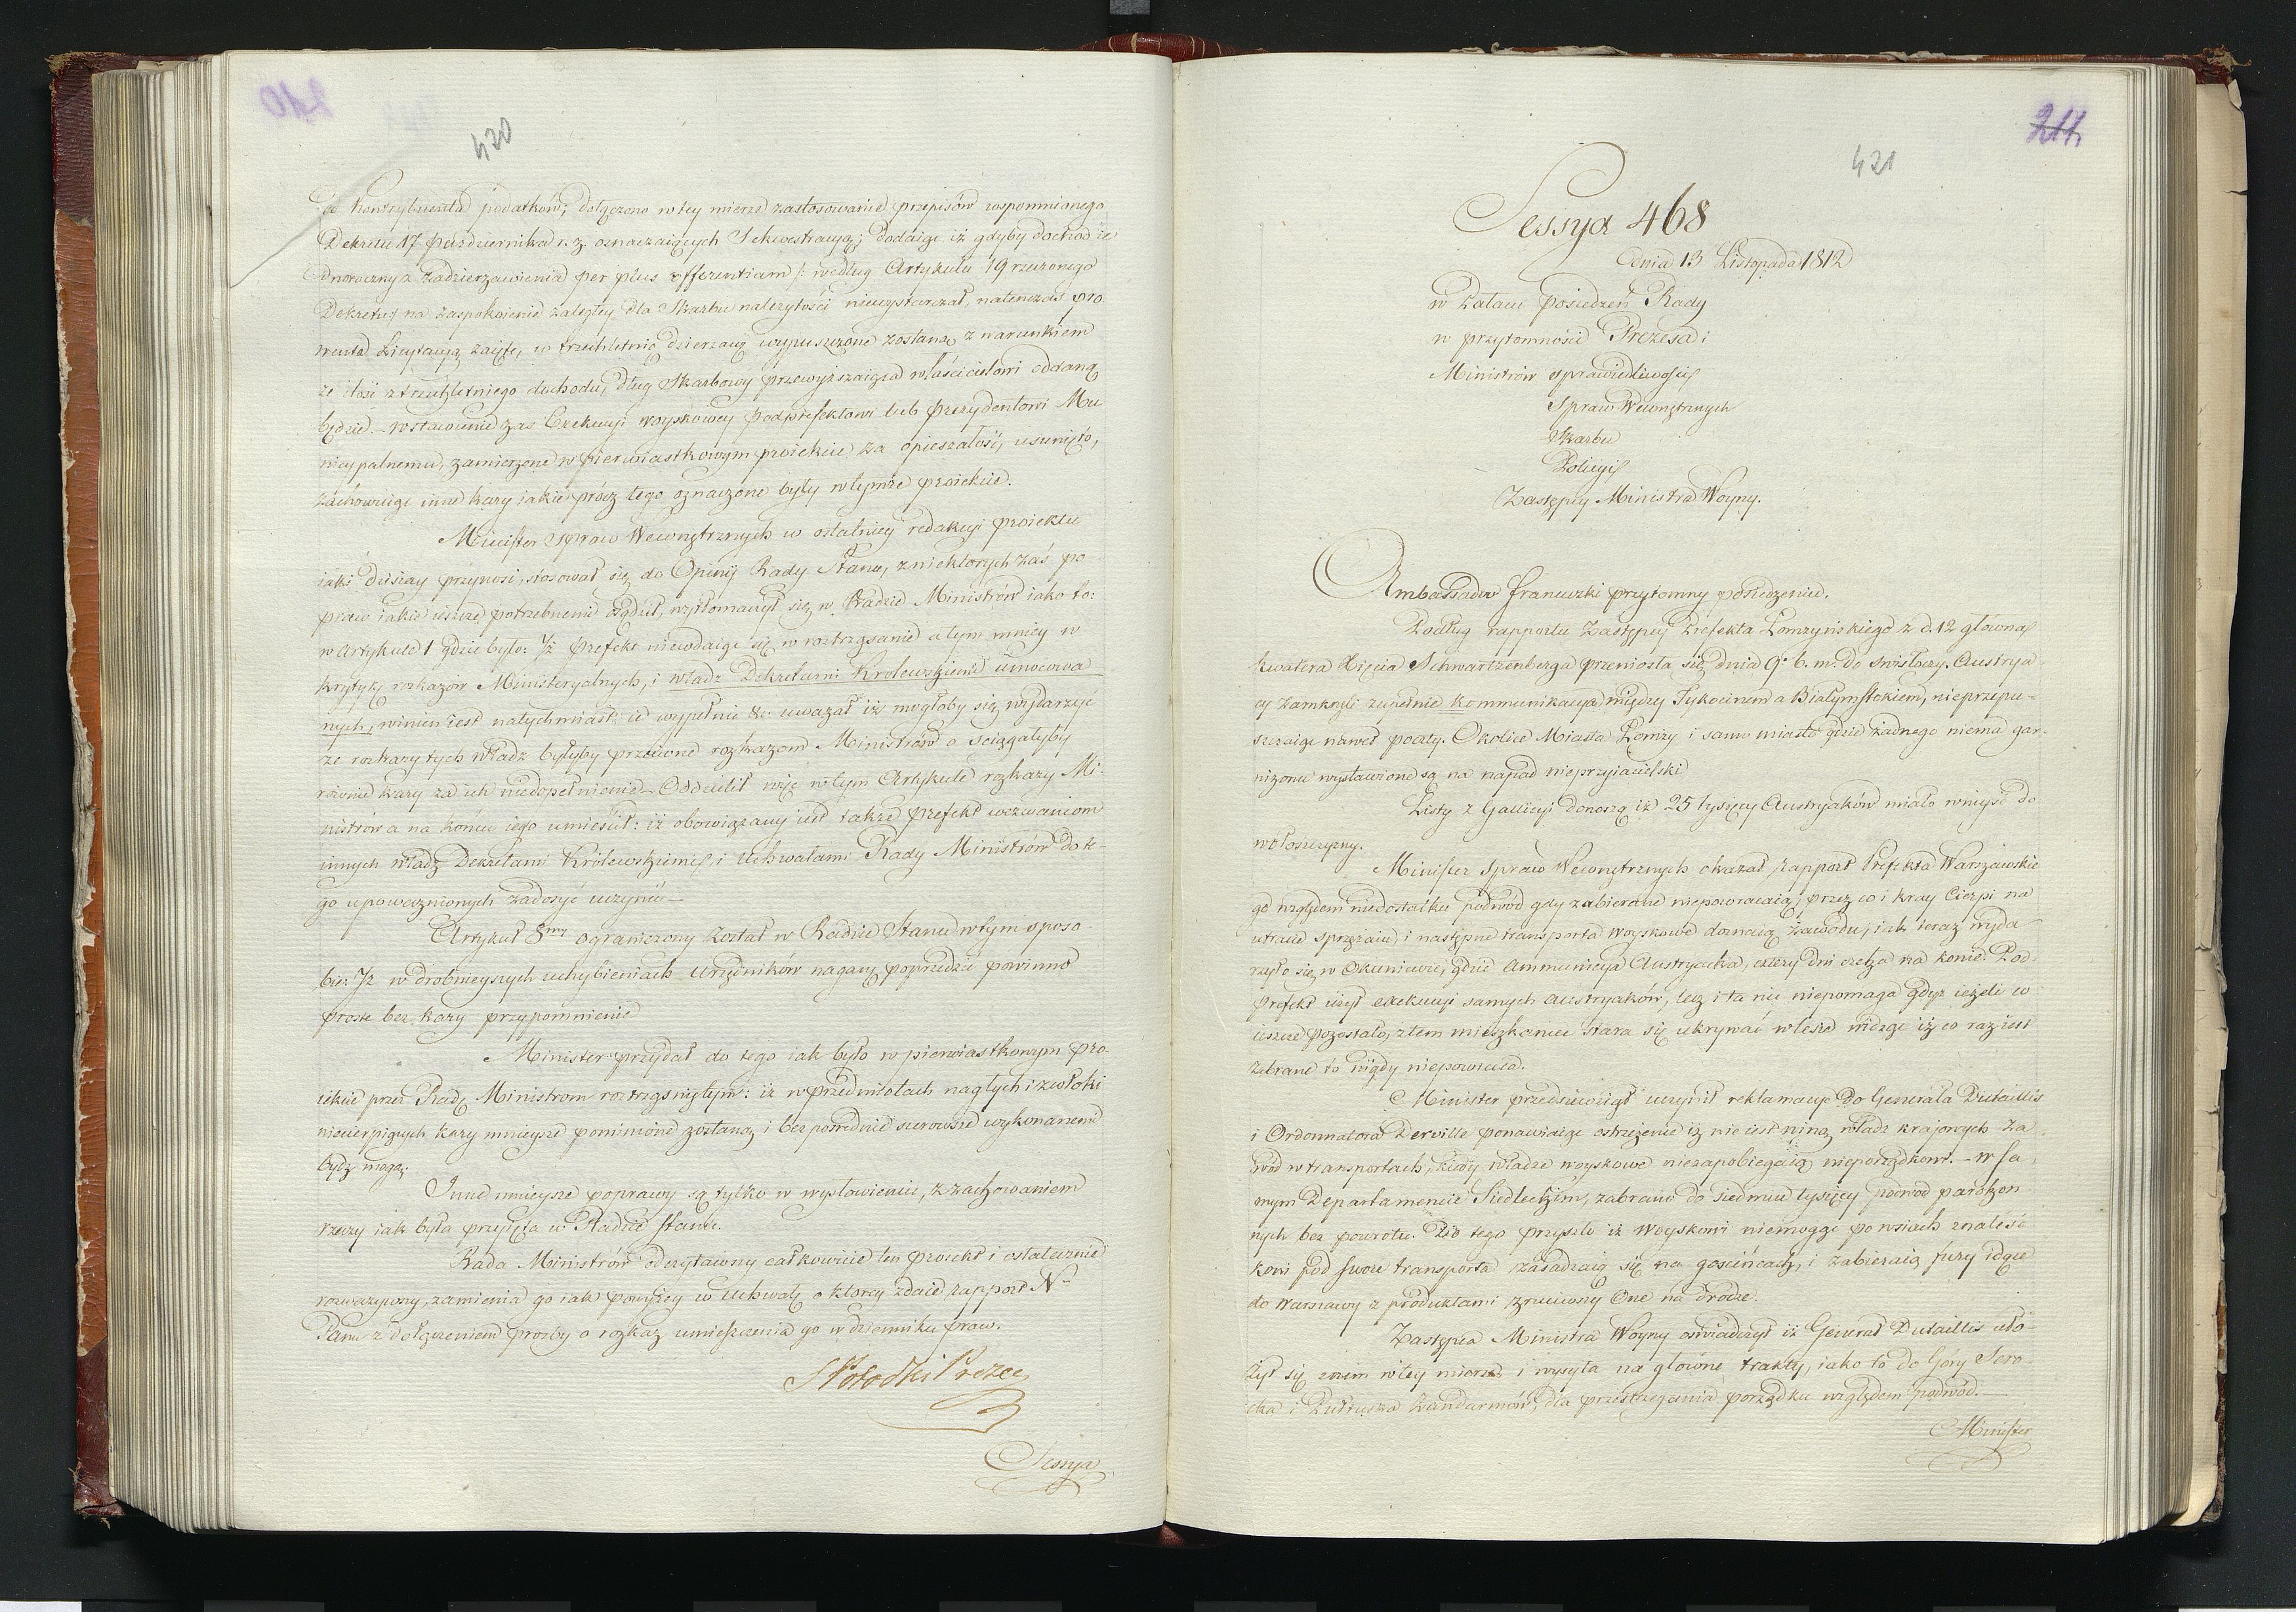 210
420
la Kontrybuenta podatków; dołączono w tey mierze zastosowanie przepisów wspomnionego
Dekretu 17 Października r. z. oznaczaiących Sekwestracyą; dodaiąc iż gdyby dochod ie
dnoroczny z zadzierzawienia per plus offerentiam /: według Artykułu 19 rzeczonego
Dekretu:/ na zaspokoienie zaległey dla Skarbu należytości niewystarczał, natenczas pro
wenta Licytacyą zaięte, w trzechletnią dzierzawę wypuszczone zostaną z warunkiem
że ilość z trzechletniego dochodu, dług Skarbowy przewyższaiąca właścicielowi oddaną
będzie. – Wstawienie zas Exekucyi woyskowey Podprefektowi lub Prezydentowi Mu
nicypalnemu, zamierzone w pierwiastkowym proiekcie za opieszałość, usunięto,
zachowuiąc inne kary iakie prócz tego oznaczone były w tymże proiekcie.
Minister Spraw Wewnętrznych w ostatniey redakcyi proiektu
iaki dzisiay przynosi, stosował się do Opinij Rady Stanu, z niektorych zaś po
praw iakie ieszcze potrzebnemi osądził, wytłomaczył się w Radzie Ministrów iako to:
w Artykule 1 gdzie było: Iż Prefekt niewdaiąc się w roztrząsanie a tym mniey w
krytykę rozkazów Ministeryalnych, i władz Dekretami Krolewskiemi umocowa
nych, winien iest natychmiast ie wypełnić &c. uważał iż mogłoby się wydarzyć
że rozkazy tych władz byłyby przeciwne rozkazom Ministrów a sciągałyby
rownie kary za ich niedopełnienie – Oddzielił więc w tym Artykule rozkazy Mi-
nistrów a na końcu iego umieścił: iż obowiązany iest także Prefekt wezwaniom
innych władz Dekretami Królewskiemi, i Uchwałami Rady Ministrów do te-
go upoważnionych zadosyć uczynić –
Artykuł 8my ograniczony został w Radzie Stanu w tym sposo-
bie: Iż w drobnieyszych uchybieniach Urzędników naganę poprzedzić powinno
proste bez kary przypomnienie
Minister przydał do tego iak było w pierwiastkowym pro-
iekcie przez Radę Ministrow roztrząsniętym: iż w przedmiotach nagłych i zwłoki
niecierpiących kary mnieysze pominione zostaną i bezpośrednie surowsze wykonanemi
bydź mogą.
Inne mnieysze poprawy są tylko w wysłowieniu, z zachowaniem
rzeczy iak była przyięta w Radzie Stanu.
Rada Ministrów odczytawszy całkowicie ten proiekt i ostatecznie
rozważywszy, zamienia go iak powyżey w Uchwałę, o ktorey zdaie rapport N.
Panu z dołączeniem prośby o rozkaz umieszczenia go w dzienniku praw.
S Potocki Prezes
Sessya
211
421
Sessya 468
Dnia 13 Listopada 1812
w Pałacu Posiedzeń Rady
w przytomności Prezesa i
Ministrów Sprawiedliwości
Spraw Wewnętrznych
Skarbu
Policyi
Zastępcy Ministra Woyny.
Ambassador Francuzki przytomny posiedzeniu.
Podług rapportu Zastępcy Prefekta Łomżyńskiego z d. 12 głowna
kwatera Xięcia Schwartzenberga przeniosła się dnia 9 b. m. do Swisłoczy. Austrya-
cy zamknęli zupełnie kommunikacyą między Tykocinem a Białymstokiem, nieprzepu-
szczaiąc nawet poczty. Okolice Miasta Łomży i samo miasto gdzie żadnego niema gar-
nizonu wystawione są na napad nieprzyiacielski
Listy z Gallicyi donoszą iż 25 tysięcy Austryaków miało wniyść do
wołoszczyzny.
Minister Spraw Wewnętrznych okazał rapport Prefekta Warszawskie
go względem niedostatku podwod gdy zabierane niepowracaią, przez co i kray cierpi na
utracie sprzężaiu, i następne transporta woyskowe doznaią zawodu, iak teraz wyda-
rzyło się w Okuniewie, gdzie Ammunicya Austryacka, cztery dni czeka na konie. Pod-
prefekt użył exekucyi samych Austryaków, lecz i ta nic niepomaga gdyż ieżeli co
ieszcze pozostało, z tem mieszkaniec stara się ukrywać w lesie widząc iż co raz iest
zabrane to nigdy niepowraca.
Minister przedsięwziął uczynić reklamacye do Generała Dutaillis
i Ordonnatora Derville ponawiaiąc ostrzeżenie iż nie iest winą władz kraiowych za-
wód w transportach, kiedy władze woyskowe niezapobiegaią nieporządkowi. – w sa-
mym Departamencie Siedleckim, zabrano do siedmiu tysięcy podwod parokon
nych bez powrotu. Do tego przyszło iż woyskowi niemogąc po wsiach znaleść
koni pod swoie transporta zasadzaią się na gościńcach, i zabieraią fury idące
do Warszawy z produktami zruciwszy One na drodze.
Zastępca Ministra Woyny oświadczył iż Generał Dutaillis uło-
żył się z nim w tey mierze i wysyła na główne trakty, iako to do Góry Sero-
cka i Pułtuska Żandarmów, dla przestrzegania porządku względem podwód. –
Minister